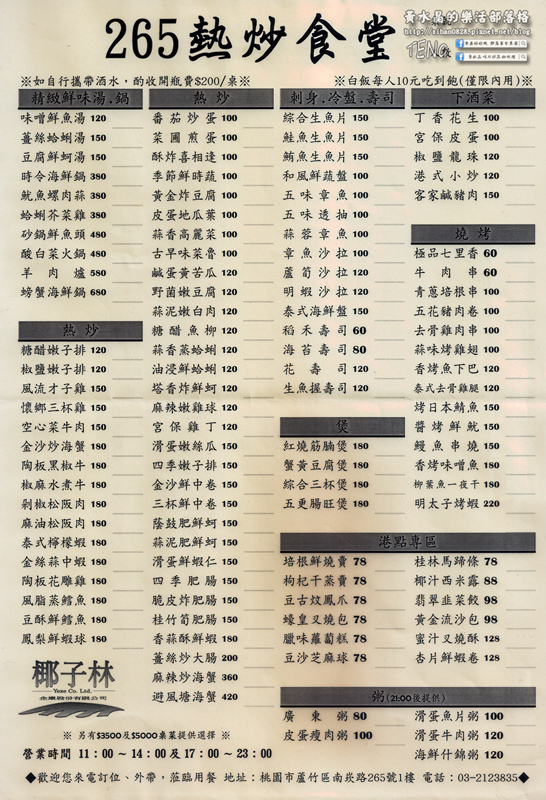 黃水晶的樂活部落格
http://sihan0828.pixnet.net/blog
265熱炒食堂
※如自行攜帶酒水，酌收開瓶費$200/桌※
※白飯每人10元吃到飽(僅限內用)※
精緻鮮味湯.鍋
味噌鮮魚湯 120
薑絲蛤蜊湯 150
豆腐鮮蚵湯 150
時令海鮮鍋 380
魷魚螺肉蒜 380
蛤蜊芥菜雞 380
砂鍋鮮魚頭 480
酸白菜火鍋 480
羊肉爐 580
螃蟹海鮮鍋 680
熱炒
糖醋嫩子排 120
椒鹽嫩子排 120
風流才子雞 150
懷鄉三杯雞 150
空心菜牛肉 150
金沙炒海蟹 180
陶板黑椒牛 180
椒麻水煮牛 180
剁椒松阪肉 180
麻油松阪肉 180
泰式檸檬蝦 180
金絲蒜中蝦 180
陶板花雕雞 180
風脂蒸鱈魚 180
豆酥鮮鱈魚 180
鳳梨鮮蝦球 180
椰子林
Yeze Co. Ltd.
企業股份有限公司
熱炒
番茄炒蛋 100
菜圃煎蛋 100
酥炸喜相逢 100
季節鮮時蔬 100
黃金炸豆腐 100
皮蛋地瓜葉 100
蒜香高麗菜 100
古早味菜魯 100
鹹蛋黃苦瓜 120
野菌嫩豆腐 120
蒜泥嫩白肉 120
糖醋魚柳 120
蒜香蒸蛤蜊 120
油浸鮮蛤蜊 120
塔香炸鮮蚵 120
麻辣嫩雞球 120
宮保雞丁 120
滑蛋嫩絲瓜 150
四季嫩子排 150
金沙鮮中卷 150
三杯鮮中卷 150
蔭鼓肥鮮蚵 150
蒜泥肥鮮蚵 150
滑蛋鮮蝦仁 150
四季肥腸 150
脆皮炸肥腸 150
桂竹筍肥腸 150
香蒜酥鮮蝦 180
薑絲炒大腸 200
麻辣炒海蟹 360
避風塘海蟹 420
刺身.冷盤.壽司
綜合生魚片 150
鮭魚生魚片 150
鮪魚生魚片 150
和風鮮蔬盤 100
五味章魚 100
五味透抽 100
蒜蓉章魚 100
章魚沙拉 100
蘆筍沙拉 120
明蝦沙拉 120
泰式海鮮盤 150
稻禾壽司 60
海苔壽司 80
花壽司 120
生魚握壽司 120
煲
紅燒筋腩煲 180
蟹黃豆腐煲 180
綜合三杯煲 180
五更腸旺煲 180
下酒菜
丁香花生 100
宮保皮蛋 100
椒鹽龍珠 120
港式小炒 120
客家鹹豬肉 150
燒烤
極品七里香 60
牛肉串 60
青蔥培根串 100
五花豬肉卷 100
去骨雞肉串 100
蒜味烤雞翅 100
香烤魚下巴 120
泰式去骨雞腿 120
烤日本鯖魚 150
醬烤鮮魷 150
鰻魚串燒 150
香烤味噌魚 180
柳葉魚一夜干 180
明太子烤蝦 220
港點專區
培根鮮燒賣 78
枸杞干蒸賣 78
豆古炆鳳爪 78
蠔皇叉燒包 78
臘味蘿蔔糕 78
豆沙芝麻球 78
桂林馬蹄條 78
椰汁西米露 88
翡翠韭菜餃 98
黃金流沙包 98
蜜汁叉燒酥 128
杏片鮮蝦卷 128
粥(21:00後提供)
廣東粥 80
皮蛋瘦肉粥 100
滑蛋魚片粥 100
滑蛋牛肉粥 120
海鮮什錦粥 120
※ 另有$3500及$5000桌菜提供選擇 ※
營業時間 11：00～14：00及17：00～23：00
◆歡迎您來電訂位、外帶，蒞臨用餐 地址：桃園市蘆竹區南崁路265號1樓 電話：03-2123835◆